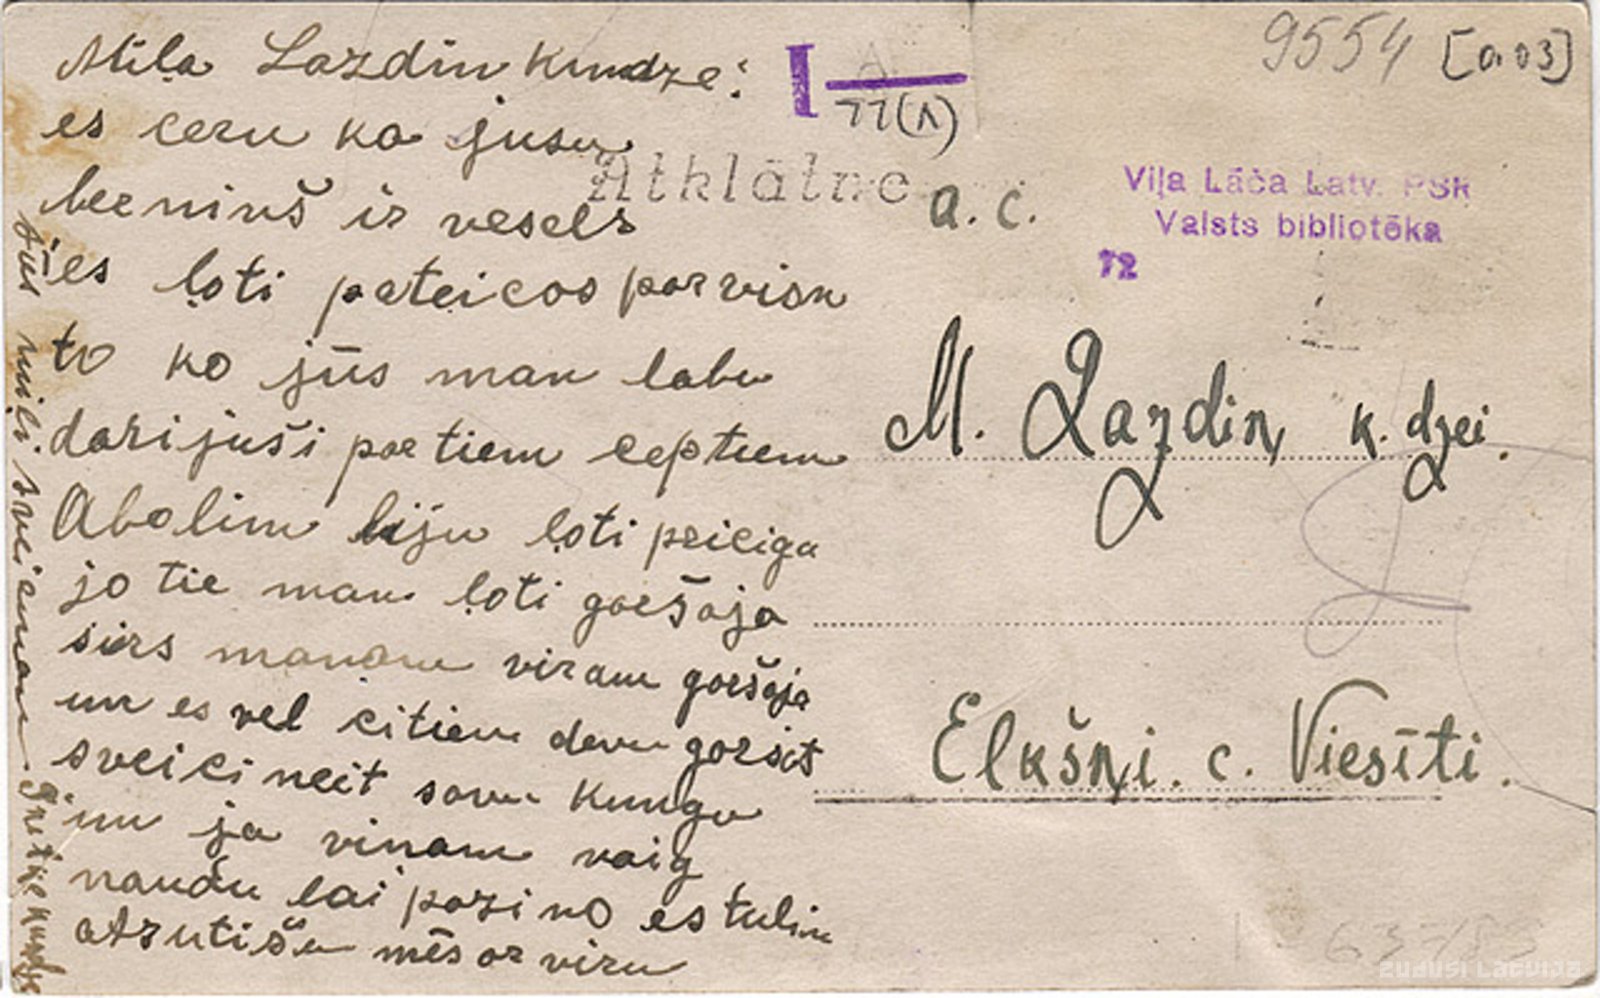 Mīļa Lazdin Kundze!
es ceru ka jusu
berniņš ir vesels
es ļoti pateicos par visu
to ko jūs man labu
darijuši par tiem ceptiem
Aboliem biju ļoti priciga
jo tie man ļoti garšoja
sirs manam viram garšoja
un es vel citiem devu garšot
sveicineit savu Kungu
un ja vinam vaig
naudu lai pazino es tulin
atsutišu mēs ar viru
jūs miļi sveicinam
Kundze
Atklātne a. c.
I A
77(A)
9554 [a 03]
Viļa Lāča Latv. PSR
Valsts bibliotēka
72
M. Lazdiņ k. dzei.
Elkšņi. c. Viesīti.
zudusi latvija